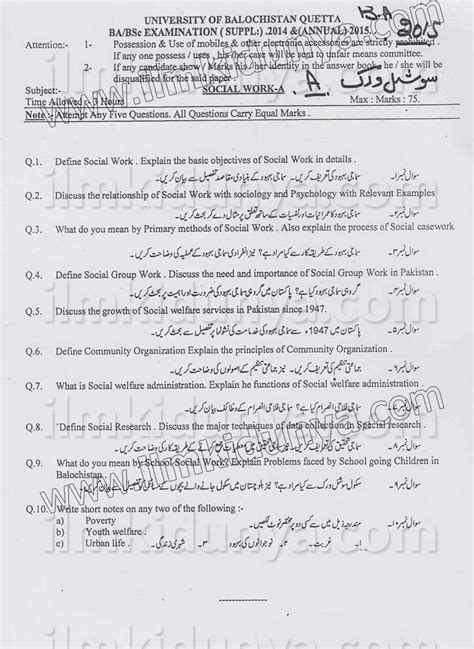 UNIVERSITY OF BALOCHISTAN QUETTA
B-A
BA/BSc EXAMINATION ( SUPPL:) .2014 &(ANNUAL) 2015.
2015
Attention:- 1- Possession & Use of mobiles & other electronic accessories are strictly prohibited .
If any one possess / uses , his/her case will be sent to unfair means committee.
2- If any candidate show / Marks his / her identity in the answer book, he / she will be
disqualified for the said paper.
سوشل ورک A.
Subject:- SOCIAL WORK-A
Time Allowed :- 3 Hours Max : Marks : 75.
Note :- Attempt Any Five Questions. All Questions Carry Equal Marks .
Q.1. Define Social Work . Explain the basic objectives of Social Work in details .
سوال نمبر۱۔ سماجی بہبود کی تعریف کریں۔ سماجی بہبود کے بنیادی مقاصد تفصیل سے بیان کریں۔
Q.2. Discuss the relationship of Social Work with sociology and Psychology with Relevant Examples
سوال نمبر۲۔ سماجی بہبود کا عمرانیات اور نفسیات کے ساتھ تعلق پر مثال دے کر بحث کریں۔
Q.3. What do you mean by Primary methods of Social Work . Also explain the process of Social casework
سوال نمبر۳۔ سماجی بہبود کے طریقہ کار سے کیا مراد ہے؟ نیز انفرادی سماجی بہبود کے عملیہ کی وضاحت کریں۔
Q.4. Define Social Group Work . Discuss the need and importance of Social Group Work in Pakistan .
سوال نمبر۴۔ گروہی سماجی بہبود کیا ہے؟ پاکستان میں گروہی سماجی بہبود کی ضرورت اور اہمیت پر بحث کریں۔
Q.5. Discuss the growth of Social welfare services in Pakistan since 1947.
سوال نمبر۵۔ پاکستان میں 1947 سے سماجی بہبود کی خدمات کی نشوونما پر تفصیل سے بحث کریں۔
Q.6. Define Community Organization Explain the principles of Community Organization .
سوال نمبر۶۔ جماعتی تنظیم کی تعریف کریں۔ نیز جماعتی تنظیم کے اصولوں کی وضاحت کریں۔
Q.7. What is Social welfare administration. Explain he functions of Social welfare administration .
سوال نمبر۷۔ سماجی فلاحی انصرام کیا ہے؟ سماجی فلاحی انصرام کے وظائف بیان کریں۔
Q.8. Define Social Research . Discuss the major techniques of data collection in Special research .
سوال نمبر۸۔ سماجی تحقیق کی تعریف کریں۔ نیز سماجی تحقیق میں کے طریقہ کار کی وضاحت کریں۔
Q.9. What do you mean by School Social Work? Explain Problems faced by School going Children in
Balochistan .
سوال نمبر۹۔ سکول سوشل ورک سے کیا مراد ہے؟ نیز بلوچستان میں سکول جانے والے بچوں کے مسائل بیان کریں۔
Q.10. Write short notes on any two of the following :-
سوال نمبر۱۰۔ مندرجہ ذیل میں سے کسی دو پر مختصر نوٹ لکھیں۔
a) Poverty
b) Youth welfare .
c) Urban life .
۱۔ غربت ۲۔ نوجوانوں کی بہبود ۳۔ شہری زندگی۔
www.ilmkidunya.com
ilmkidunya.com
ilmkidunya.com
www.ilmkidunya.com
ilmkidunya.com
ilmkidunya.com